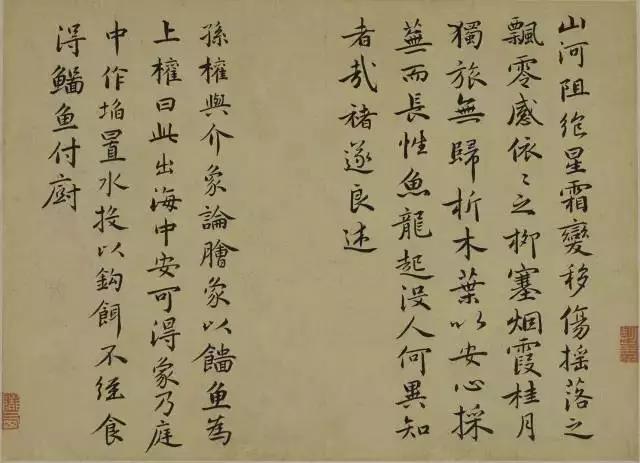 山河阻絕星霜變移傷搖落之
飄零感依〻之柳塞烟霞桂月
獨旅無歸折木葉以安心採
蕪而長性魚龍起沒人何異知
者哉褚遂良述
孫權與介象論膾象以鯔魚為
上權曰此出海中安可得象乃庭
中作埳置水投以鈎餌不經食
得鯔魚付廚